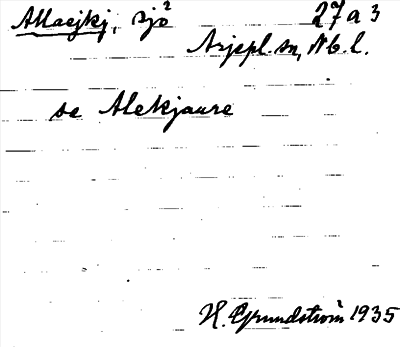 Allaejkj, sjö 27 a 3
Arjepl. sn, Nb. l.
se Alekjaure
H. Grundström 1935